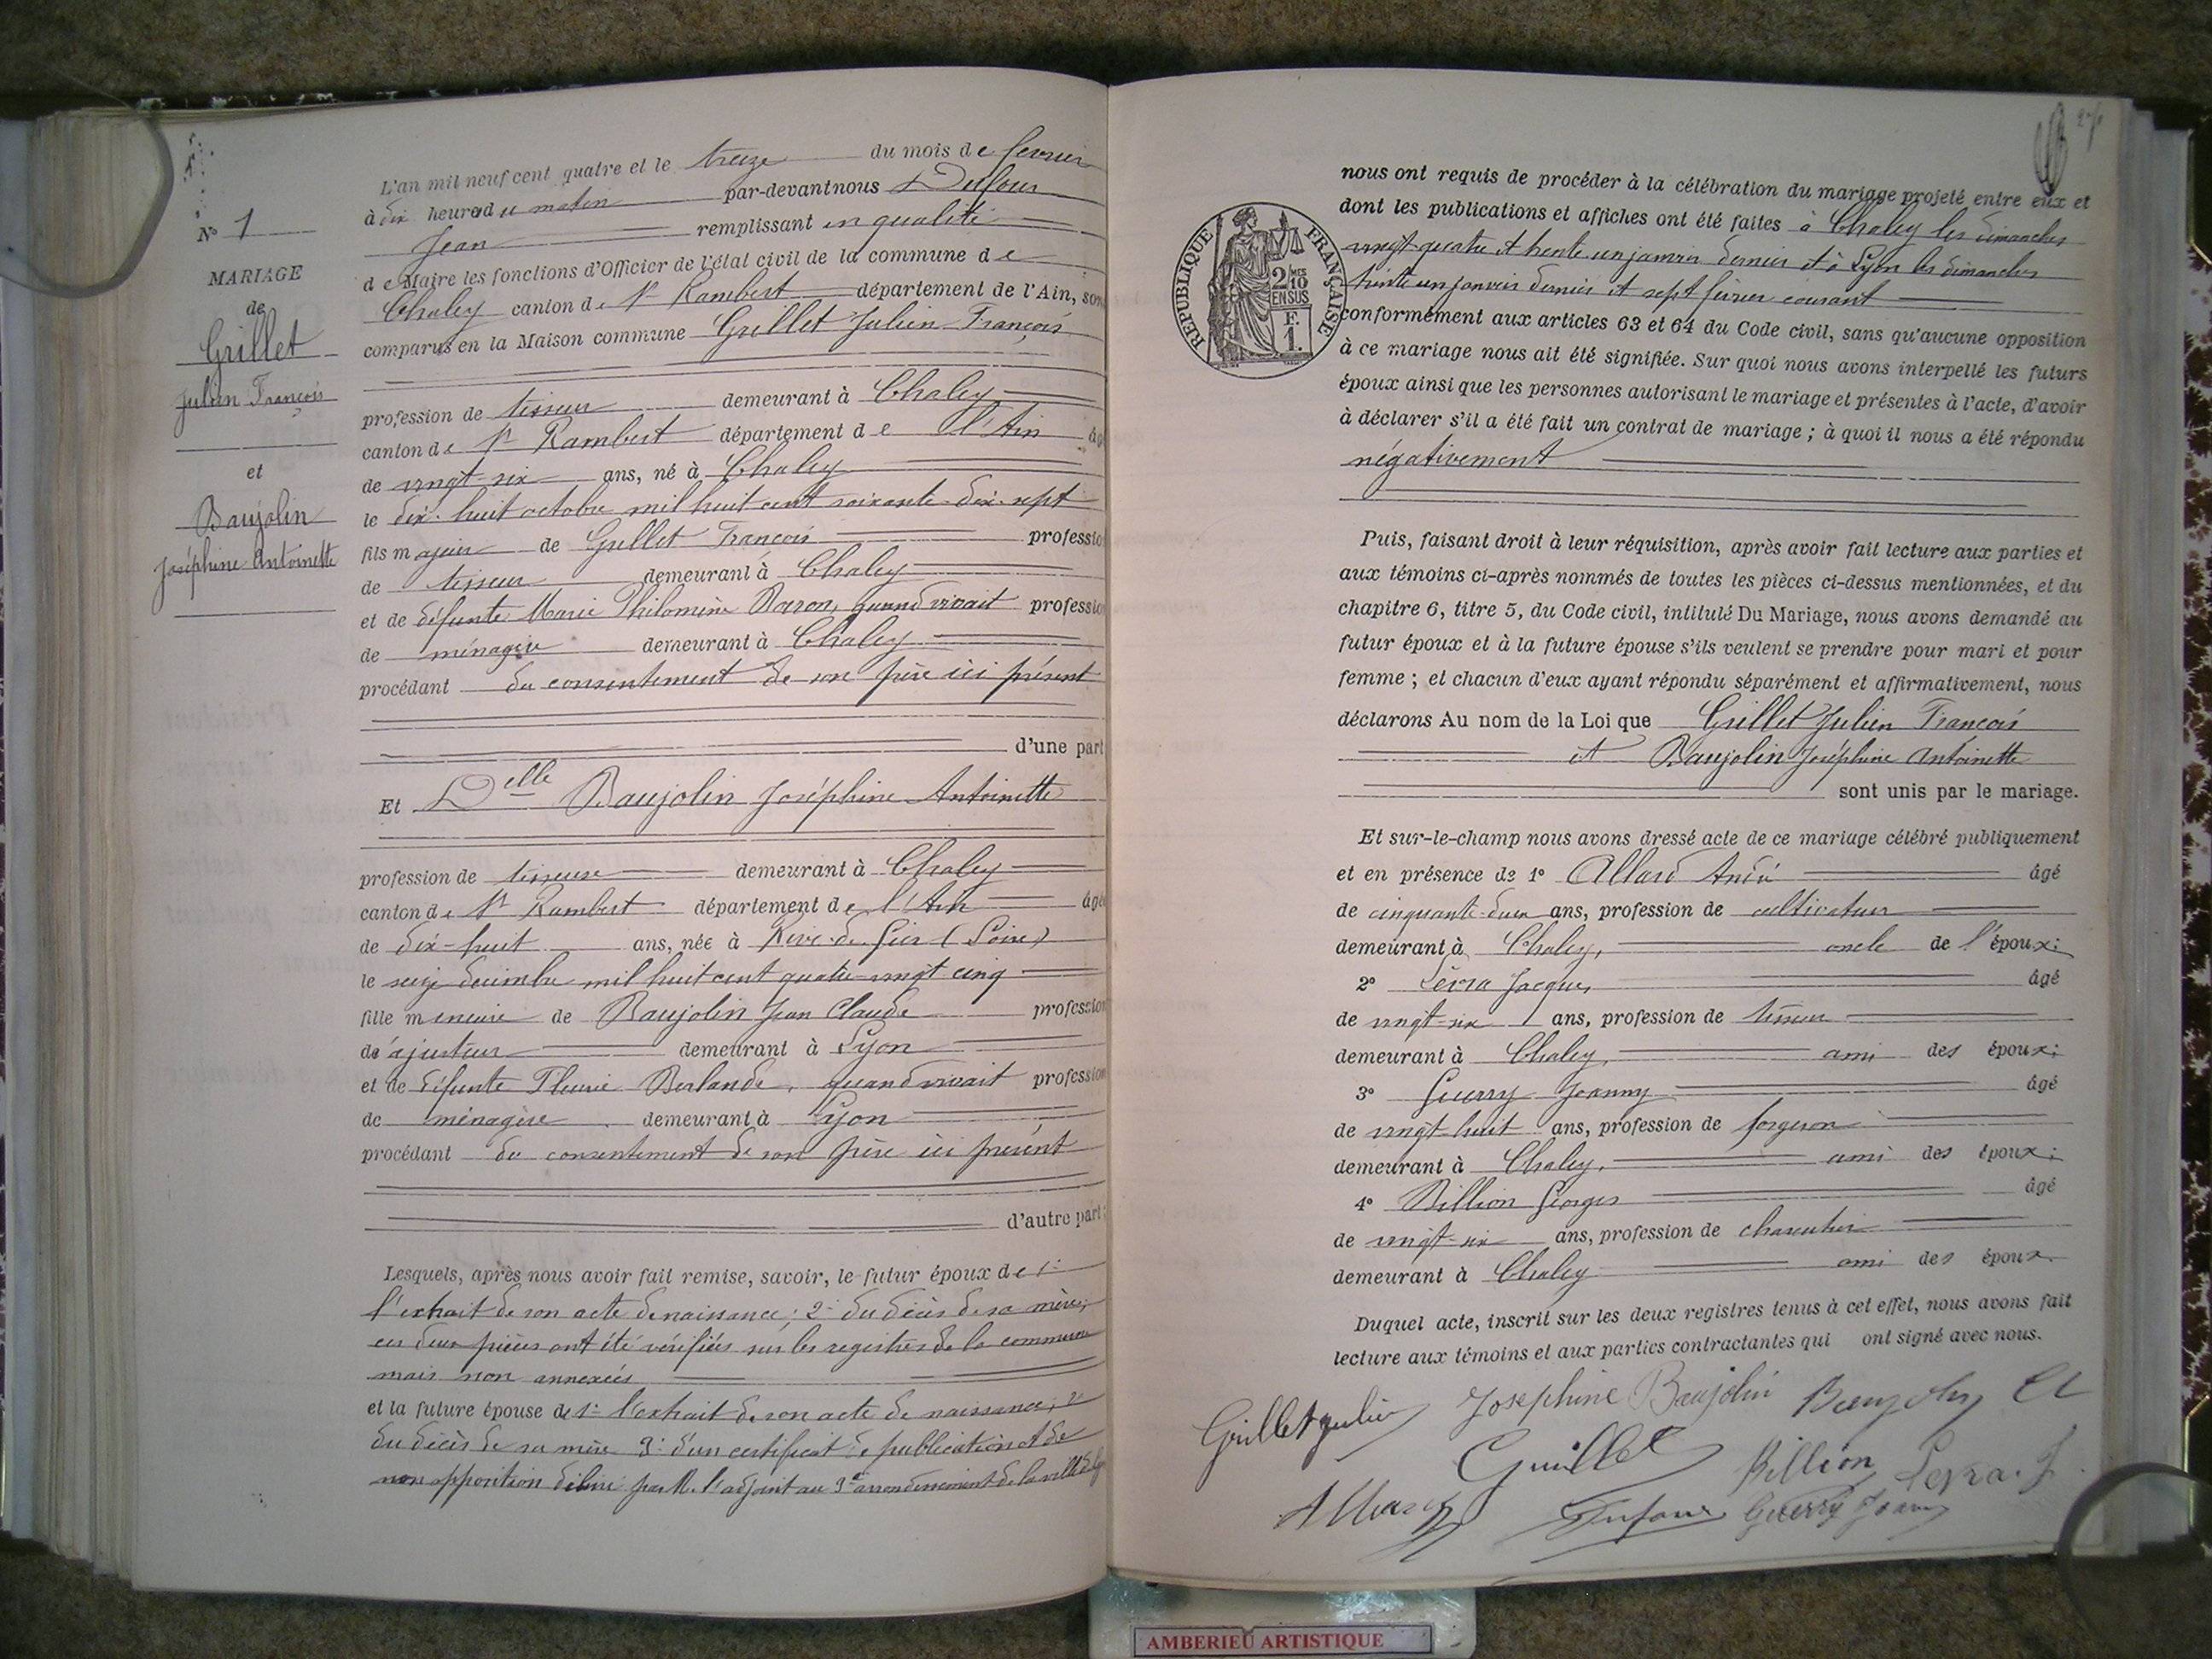 N° 1
MARIAGE
de
Grillet
Julien François
et
Baujolin
Joséphine Antoinette
L'an mil neuf cent quatre et le treize du mois de fevrier
à dix heures du matin par-devant nous Dufour
Jean remplissant en qualité
de Maire les fonctions d'Officier de l'état civil de la commune de
Chaley canton de St Rambert département de l'Ain, son
comparus en la Maison commune Grillet Julien François
profession de tisseur demeurant à Chaley
canton de St Rambert département de l'Ain âgé
de vingt-six ans, né à Chaley
le dix-huit octobre mil huit cent soixante-dix-sept
fils majeur de Grillet François professio
de tisseur demeurant à Chaley
et de défunte Marie Philomène quand vivait professio
de ménagère demeurant à Chaley
procédant du consentement de son père ici présent
d'une part
Et Delle Baujolin Joséphine Antoinette
profession de tisseuse demeurant à Chaley
canton de St Rambert département de l'Ain âgé
de dix-huit ans, née à Rive-de-Gier (Loire)
le seize decembre mil huit cent quatre-vingt cinq
fille mineure de Baujolin Jean Claude profession
de ajusteur demeurant à Lyon
et de défunte Fleurie Berlande, quand vivait profession
de ménagère demeurant à Lyon
procédant du consentement de son père ici présent
d'autre part
Lesquels, après nous avoir fait remise, savoir, le futur époux de 1°
l'extrait de son acte de naissance; 2° du décès de sa mère;
ces deux pièces ont été vérifiées sur les registres de la commune
mais non annexées
et la future épouse de 1° l'extrait de son acte de naissance, 2°
du décès de sa mère 3° d'un certificat de publication et de
non opposition délivré par M. l'adjoint au 3e arrondissement de la ville de
REPUBLIQUE FRANÇAISE
2/10 MES
EN SUS
F.
1.
nous ont requis de procéder à la célébration du mariage projeté entre eux et
dont les publications et affiches ont été faites à Chaley les dimanches
vingt-quatre et trente un janvier dernier et à Lyon les dimanches
trente un janvier dernier et sept février courant
conformément aux articles 63 et 64 du Code civil, sans qu'aucune opposition
à ce mariage nous ait été signifiée. Sur quoi nous avons interpellé les futurs
époux ainsi que les personnes autorisant le mariage et présentes à l'acte, d'avoir
à déclarer s'il a été fait un contrat de mariage ; à quoi il nous a été répondu
négativement
Puis, faisant droit à leur réquisition, après avoir fait lecture aux parties et
aux témoins ci-après nommés de toutes les pièces ci-dessus mentionnées, et du
chapitre 6, titre 5, du Code civil, intitulé Du Mariage, nous avons demandé au
futur époux et à la future épouse s'ils veulent se prendre pour mari et pour
femme ; et chacun d'eux ayant répondu séparément et affirmativement, nous
déclarons Au nom de la Loi que Grillet Julien François
et Baujolin Joséphine Antoinette
sont unis par le mariage.
Et sur-le-champ nous avons dressé acte de ce mariage célébré publiquement
et en présence de 1° Allard André âgé
de cinquante-deux ans, profession de cultivateur
demeurant à Chaley, oncle de l'époux;
2° Levra Jacques âgé
de vingt-six ans, profession de tisseur
demeurant à Chaley, ami des époux;
3° Guerry Joanny âgé
de vingt-huit ans, profession de forgeron
demeurant à Chaley, ami des époux;
4° Billion Georges âgé
de vingt-six ans, profession de charcutier
demeurant à Chaley ami des époux
Duquel acte, inscrit sur les deux registres tenus à cet effet, nous avons fait
lecture aux témoins et aux parties contractantes qui ont signé avec nous.
Grillet Julien Josephine Baujolin
Grillet Billion Levra. J.
Allard Dufour Guerry Joanny
AMBERIEU ARTISTIQUE